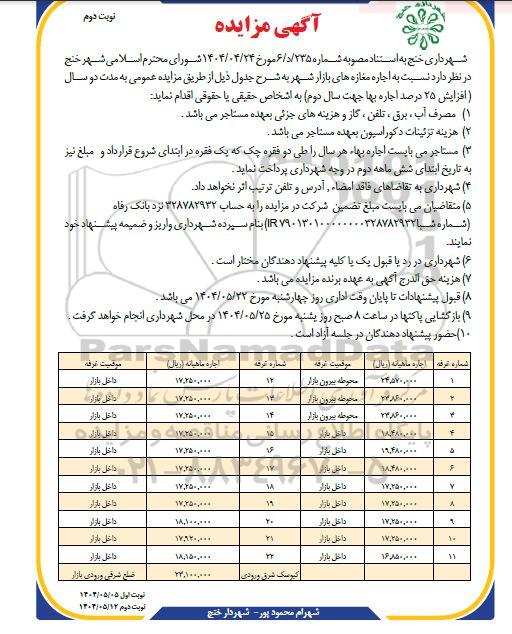 نوبت دوم
آگهی مزایده
شهرداری خنج به استناد مصوبه شماره ۲۳۵/د/۶ مورخ ۱۴۰۴/۰۴/۲۴ شورای محترم اسلامی شهر خنج
در نظر دارد نسبت به اجاره مغازه های بازار شهر به شرح جدول ذیل از طریق مزایده عمومی به مدت دو سال
( افزایش ۲۵ درصد اجاره بها جهت سال دوم) به اشخاص حقیقی یا حقوقی اقدام نماید:
۱) مصرف آب ، برق ، تلفن ، گاز و هزینه های جزئی بعهده مستاجر می باشد .
۲) هزینه تزئینات دکوراسیون بعهده مستاجر می باشد .
۳) مستاجر می بایست اجاره بهاء هر سال را طی دو فقره چک که یک فقره در ابتدای شروع قرارداد و مبلغ نیز
به تاریخ ابتدای شش ماهه دوم در وجه شهرداری پرداخت نماید .
۴) شهرداری به تقاضاهای فاقد امضاء , آدرس و تلفن ترتیب اثر نخواهد داد.
۵) متقاضیان می بایست مبلغ تضمین شرکت در مزایده را به حساب ۳۲۸۷۸۲۹۳۲ نزد بانک رفاه
(شماره شبا IR۷۹۰۱۳۰۱۰۰۰۰۰۰۰۰۳۲۸۷۸۲۹۳۲) بنام سپرده شهرداری واریز و ضمیمه پیشنهاد خود
نمایند.
۶) شهرداری در رد یا قبول یک یا کلیه پیشنهاد دهندگان مختار است .
۷) هزینه حق الدرج آگهی به عهده برنده مزایده می باشد .
۸) قبول پیشنهادات تا پایان وقت اداری روز چهارشنبه مورخ ۱۴۰۴/۰۵/۲۲ می باشد .
۹) بازگشایی پاکتها در ساعت ۸ صبح روز یشنبه مورخ ۱۴۰۴/۰۵/۲۵ در محل شهرداری انجام خواهد گرفت .
۱۰) حضور پیشنهاد دهندگان در جلسه آزاد است .
شماره غرفه موقعیت غرفه اجاره ماهیانه (ریال) شماره غرفه اجاره ماهیانه (ریال) موقعیت غرفه
۱ ۲۴,۵۷۰,۰۰۰ محوطه بیرون بازار ۱۲ ۱۷,۲۵۰,۰۰۰ داخل بازار
۲ ۲۳,۸۶۰,۰۰۰ محوطه بیرون بازار ۱۳ ۱۷,۲۵۰,۰۰۰ داخل بازار
۳ ۲۳,۸۶۰,۰۰۰ محوطه بیرون بازار ۱۴ ۱۷,۲۵۰,۰۰۰ داخل بازار
۴ ۱۸,۴۸۰,۰۰۰ داخل بازار ۱۵ ۱۷,۲۵۰,۰۰۰ داخل بازار
۵ ۱۹,۴۸۰,۰۰۰ داخل بازار ۱۶ ۱۷,۲۵۰,۰۰۰ داخل بازار
۶ ۱۸,۴۸۰,۰۰۰ داخل بازار ۱۷ ۱۷,۲۵۰,۰۰۰ داخل بازار
۷ ۱۷,۲۵۰,۰۰۰ داخل بازار ۱۸ ۱۷,۲۵۰,۰۰۰ داخل بازار
۸ ۱۷,۲۵۰,۰۰۰ داخل بازار ۱۹ ۱۷,۲۵۰,۰۰۰ داخل بازار
۹ ۱۷,۲۵۰,۰۰۰ داخل بازار ۲۰ ۱۸,۱۰۰,۰۰۰ داخل بازار
۱۰ ۱۷,۲۵۰,۰۰۰ داخل بازار ۲۱ ۱۷,۹۲۰,۰۰۰ داخل بازار
۱۱ ۱۶,۸۵۰,۰۰۰ داخل بازار ۲۲ ۱۸,۱۵۰,۰۰۰ داخل بازار
کیوسک شرق ورودی ۲۳,۱۰۰,۰۰۰ ضلع شرقی ورودی بازار
ParsNamadData
۰۲۱-۸۸۳۴۹۶۷۰-۵
نوبت اول ۱۴۰۴/۰۵/۰۵
نوبت دوم ۱۴۰۴/۰۵/۱۲
شهرام محمود پور - شهردار خنج